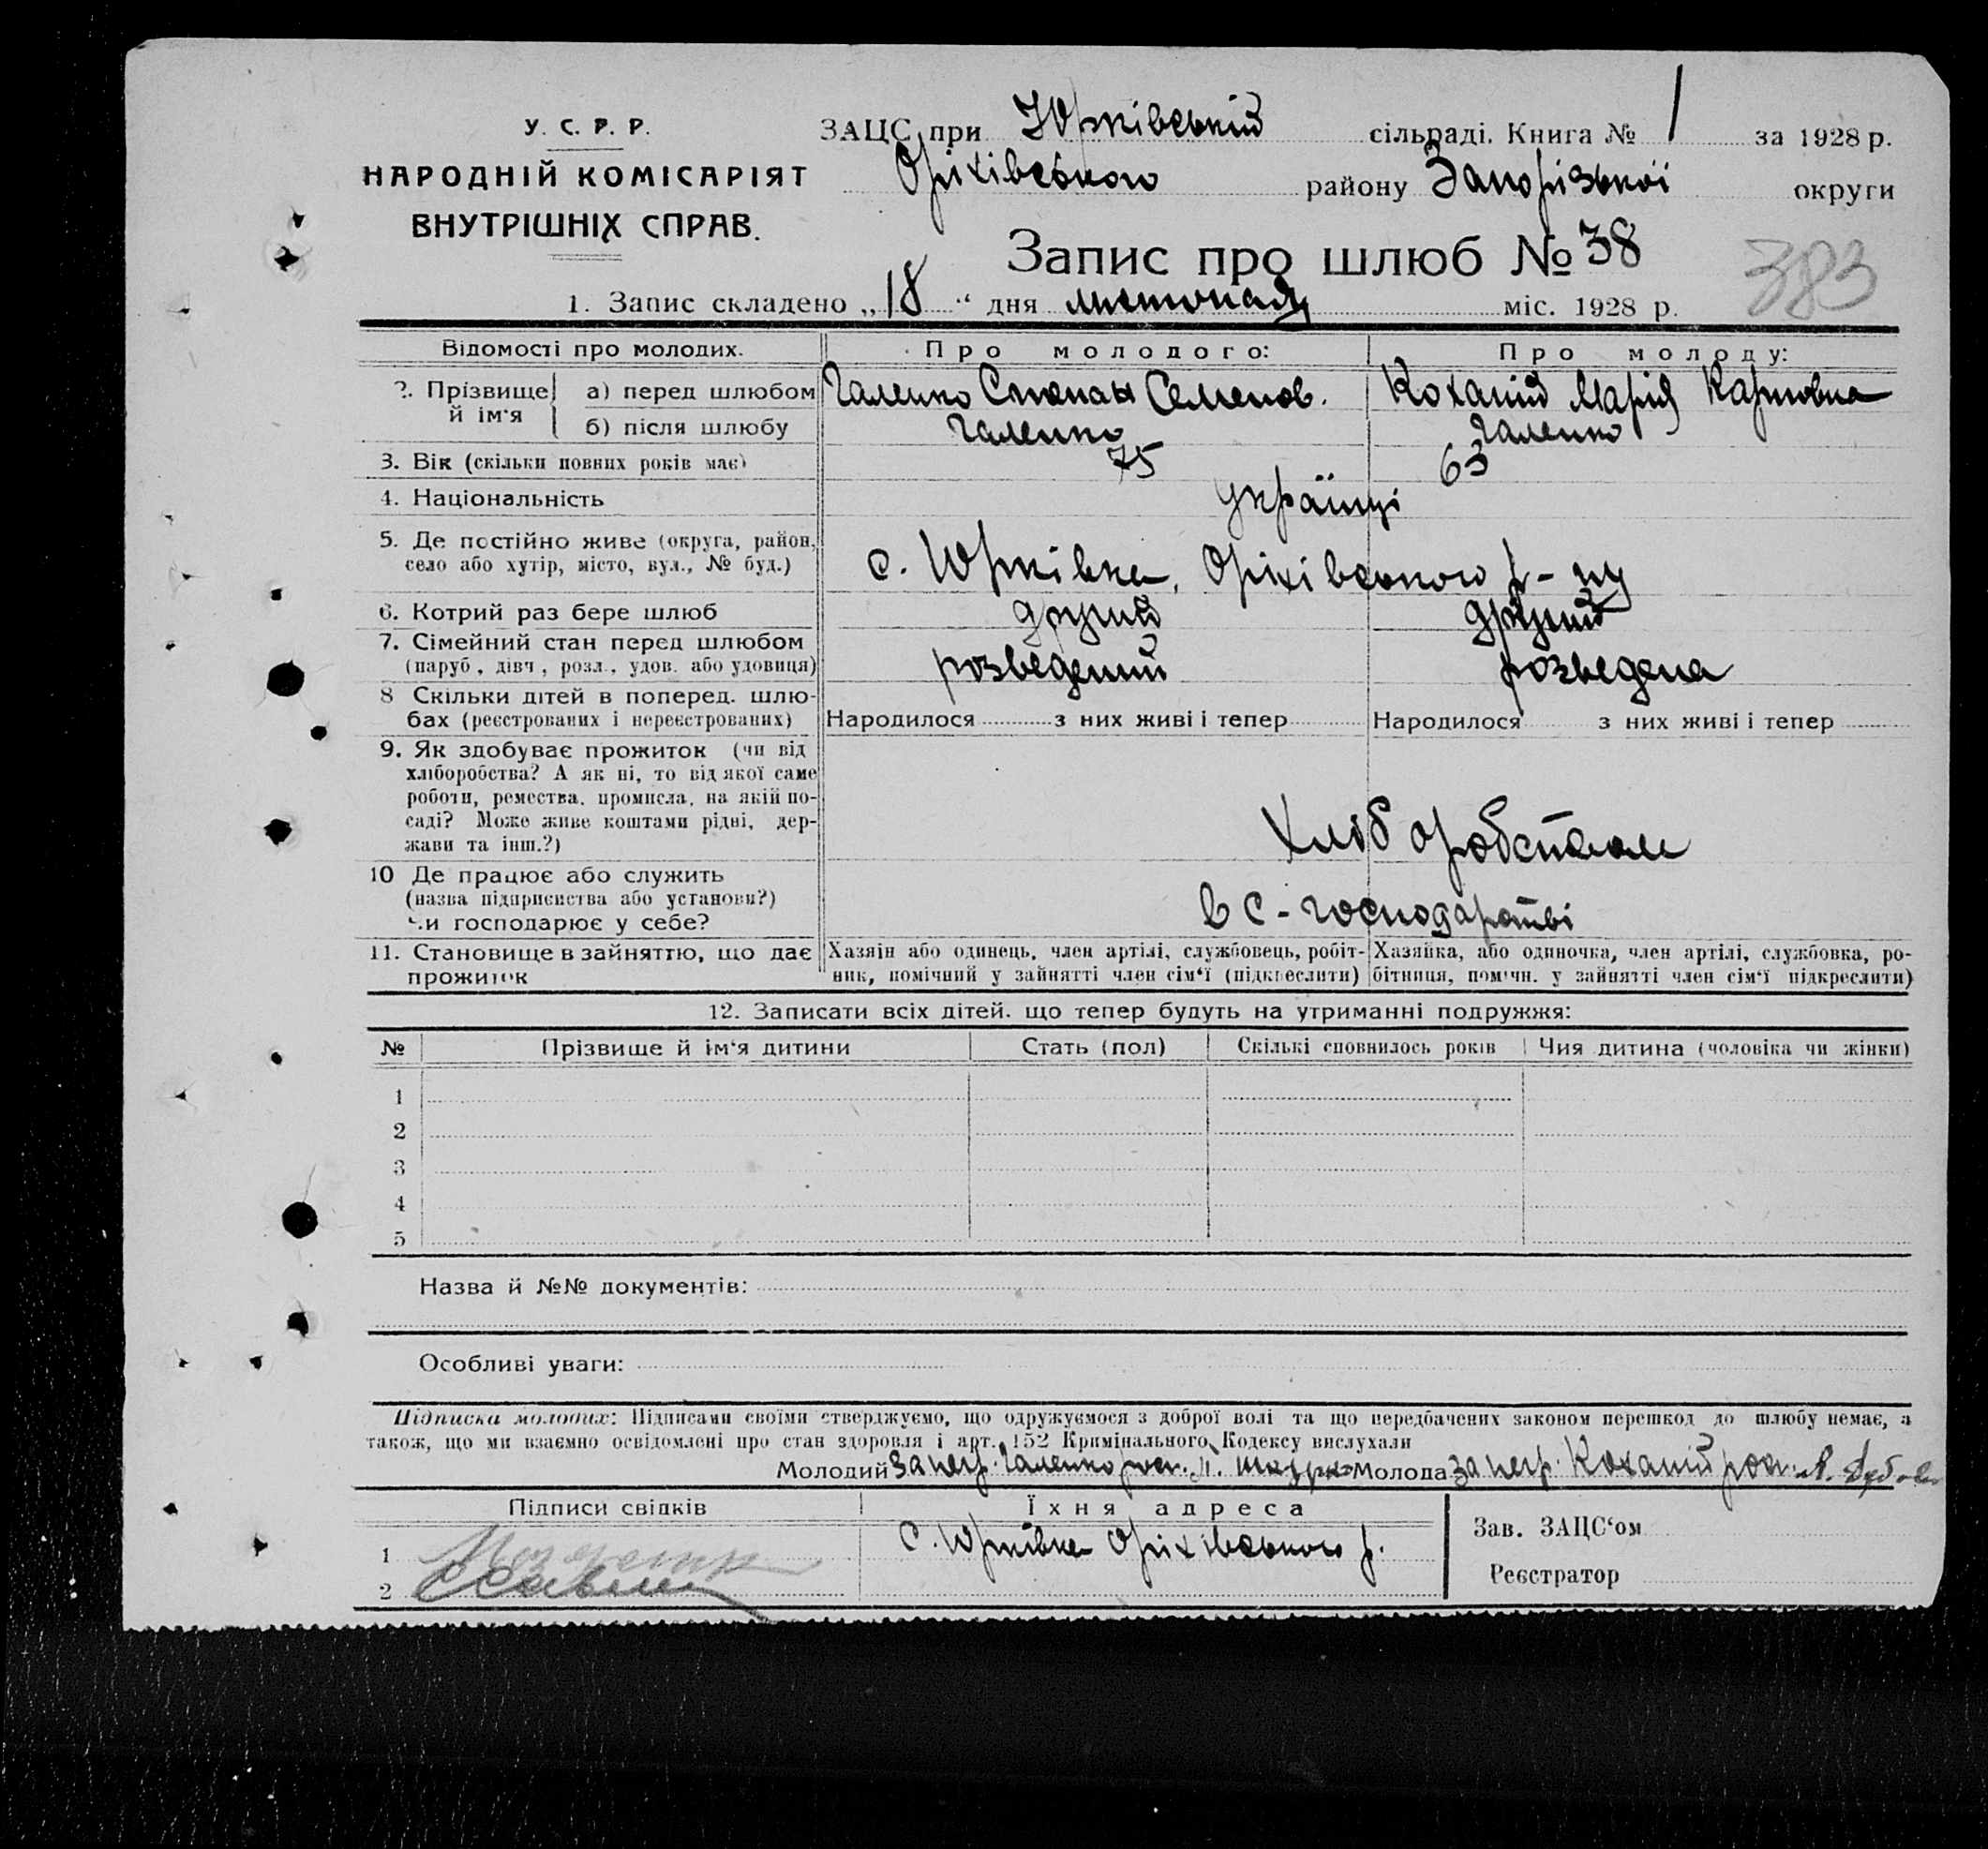 У. С. Р. Р.
НАРОДНІЙ КОМІСАРІЯТ
ВНУТРІШНІХ СПРАВ.
ЗАЦС при Юрківській сільраді. Книга № 1 за 1928 р.
Оріхівського району Запорізької округи
Запис про шлюб № 38
383
1. Запис складено „18" дня листопада міс. 1928 р.
Відомості про молодих. Про молодого: Про молоду:
2. Прізвище й ім'я
а) перед шлюбом Галенко Степан Семенов. Коханій Марія Карповна
б) після шлюбу Галенко Галенко
3. Вік (скільки повних років має) 75 63
4. Національність українці
5. Де постійно живе (округа, район, село або хутір, місто, вул., № буд.) с. Юрківка, Оріхівського р-ну
6. Котрий раз бере шлюб другий другий
7. Сімейний стан перед шлюбом (паруб., дівч., розл., удов. або удовиця) розведений розведена
8 Скільки дітей в поперед. шлюбах (реєстрованих і нереєстрованих) Народилося з них живі і тепер Народилося з них живі і тепер
9. Як здобуває прожиток (чи від
хліборобства? А як ні, то від якої саме
роботи, ремества, промисла, на якій по-
саді? Може живе коштами рідні, дер-
жави та інш.?)
Хліборобством
10 Де працює або служить
(назва підприємства або установи?)
Чи господарює у себе?
в с-господарстві
11. Становище в зайняттю, що дає прожиток
Хазяїн або одинець, член артілі, службовець, робіт-
ник, помічний у зайнятті член сім'ї (підкреслити)
Хазяйка, або одиночка, член артілі, службовка, ро-
бітниця, помічн. у зайнятті член сім'ї підкреслити)
12. Записати всіх дітей. що тепер будуть на утриманні подружжя:
№ Прізвище й ім'я дитини Стать (пол) Скількі сповнилось років Чия дитина (чоловіка чи жінки)
1
2
3
4
5
Назва й №№ документів:
Особливі уваги:
Підписка молодих: Підписами своїми стверджуємо, що одружуємося з доброї волі та що передбачених законом перешкод до шлюбу немає, а
також, що ми взаємно освідомлені про стан здоровля і арт. 152 Кримінального Кодексу вислухали
Молодий за негр. Галенко рос. Молода за негр. Коханій рос.
Підписи свідків Їхня адреса
1 с. Юрківка Оріхівського р.
2
Зав. ЗАЦС'ом
Реєстратор